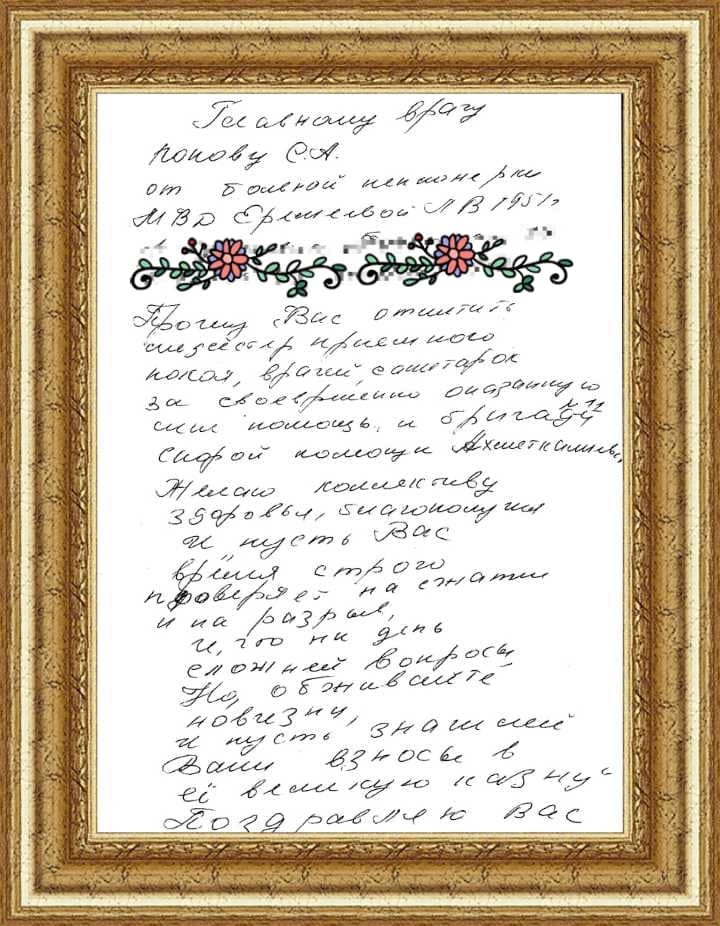 Главному врачу
Попову С.А.
от больной пенсионерки
МВД Л В 1951г
Прошу Вас отметить
медсестёр приемного
покоя, врачей, санитарок
за своевременно оказанную
мне помощь и бригаду №11
скорой помощи
Желаю коллективу
здоровья, благополучия
и пусть Вас
"время строго
проверяет на сжатие
и на разрыв,
и, что ни день
сложней вопросы
Но, обживайте
новизну,
и пусть знамений
Ваши взносы в
её великую казну"
Поздравляю Вас